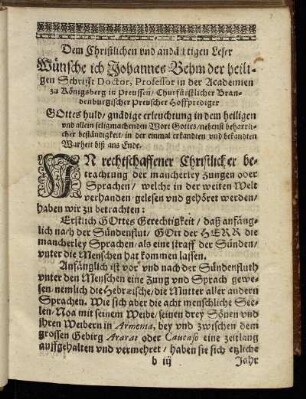 Dem Christlichen vnd andåchtigen Leser
Wünsche ich Johannes Behm der heili-
gen Schrifft Doctor, Professor in der Academien
zu Königsberg in Preussen/ Churfürstlicher Bran-
denburgischer Preuscher Hoffprediger
GOttes huld/ gnädige erleuchtung in dem heiligen
vnd allein seligmachendem Wort Gottes/ nebenst beharrli-
cher beständigkeit/ in der einmal erkandten vnd bekandten
Warheit biß ans Ende.
IN rechtschaffener Christlicher be-
trachtung der mancherley Zungen oder
Sprachen/ welche in der weiten Welt
verhanden gelesen vnd gehöret werden/
haben wir zu betrachten:
Erstlich GOttes Gerechtigkeit/ daß anfäng-
lich nach der Sündenflut/ GOtt der HERR die
mancherley Sprachen/ als eine straff der Sünden/
vnter die Menschen hat kommen lassen.
Anfänglich ist vor vnd nach der Sündenfluth
vnter den Menschen eine Zung vnd Sprach gewe-
sen/ nemlich die Hebreische/ die Mutter aller andern
Sprachen. Wie sich aber die acht menschliche See-
len/ Noa mit seinem Weibe/ seinen drey Sönen vnd
ihren Weibern in Armenia, bey vnd zwischen dem
grossen Gebirg Ararat oder Caucaso eine zeitlang
auffgehalten vnd vermehret/ haben sie sich etzliche
b iij
Jahr